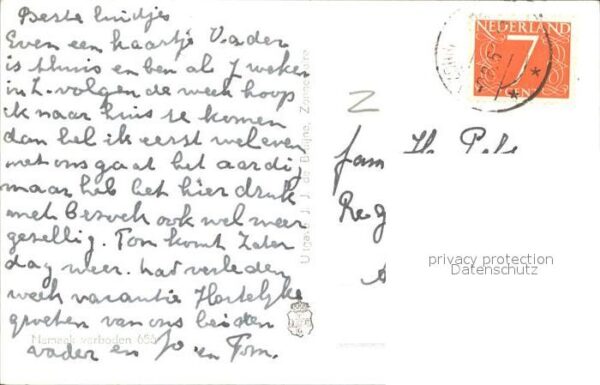 Beste luidjes
Even een kaartje Vader
is thuis en ben al 7 weken
in Z. volgende week hoop
ik naar huis te komen
dan bel ik eerst wel even
met ons gaat het aardig
maar heb het hier druk
met bezoek ook wel weer
gezellig. Tom komt Zater
dag weer. had verleden
week vacantie Hartelijke
groeten van ons beiden
vader en Jo en Tom.
Namaak verboden 655
Uitgave J. J. de
NEDERLAND
7
CENT
Z
fam
Reg
privacy protection
Datenschutz